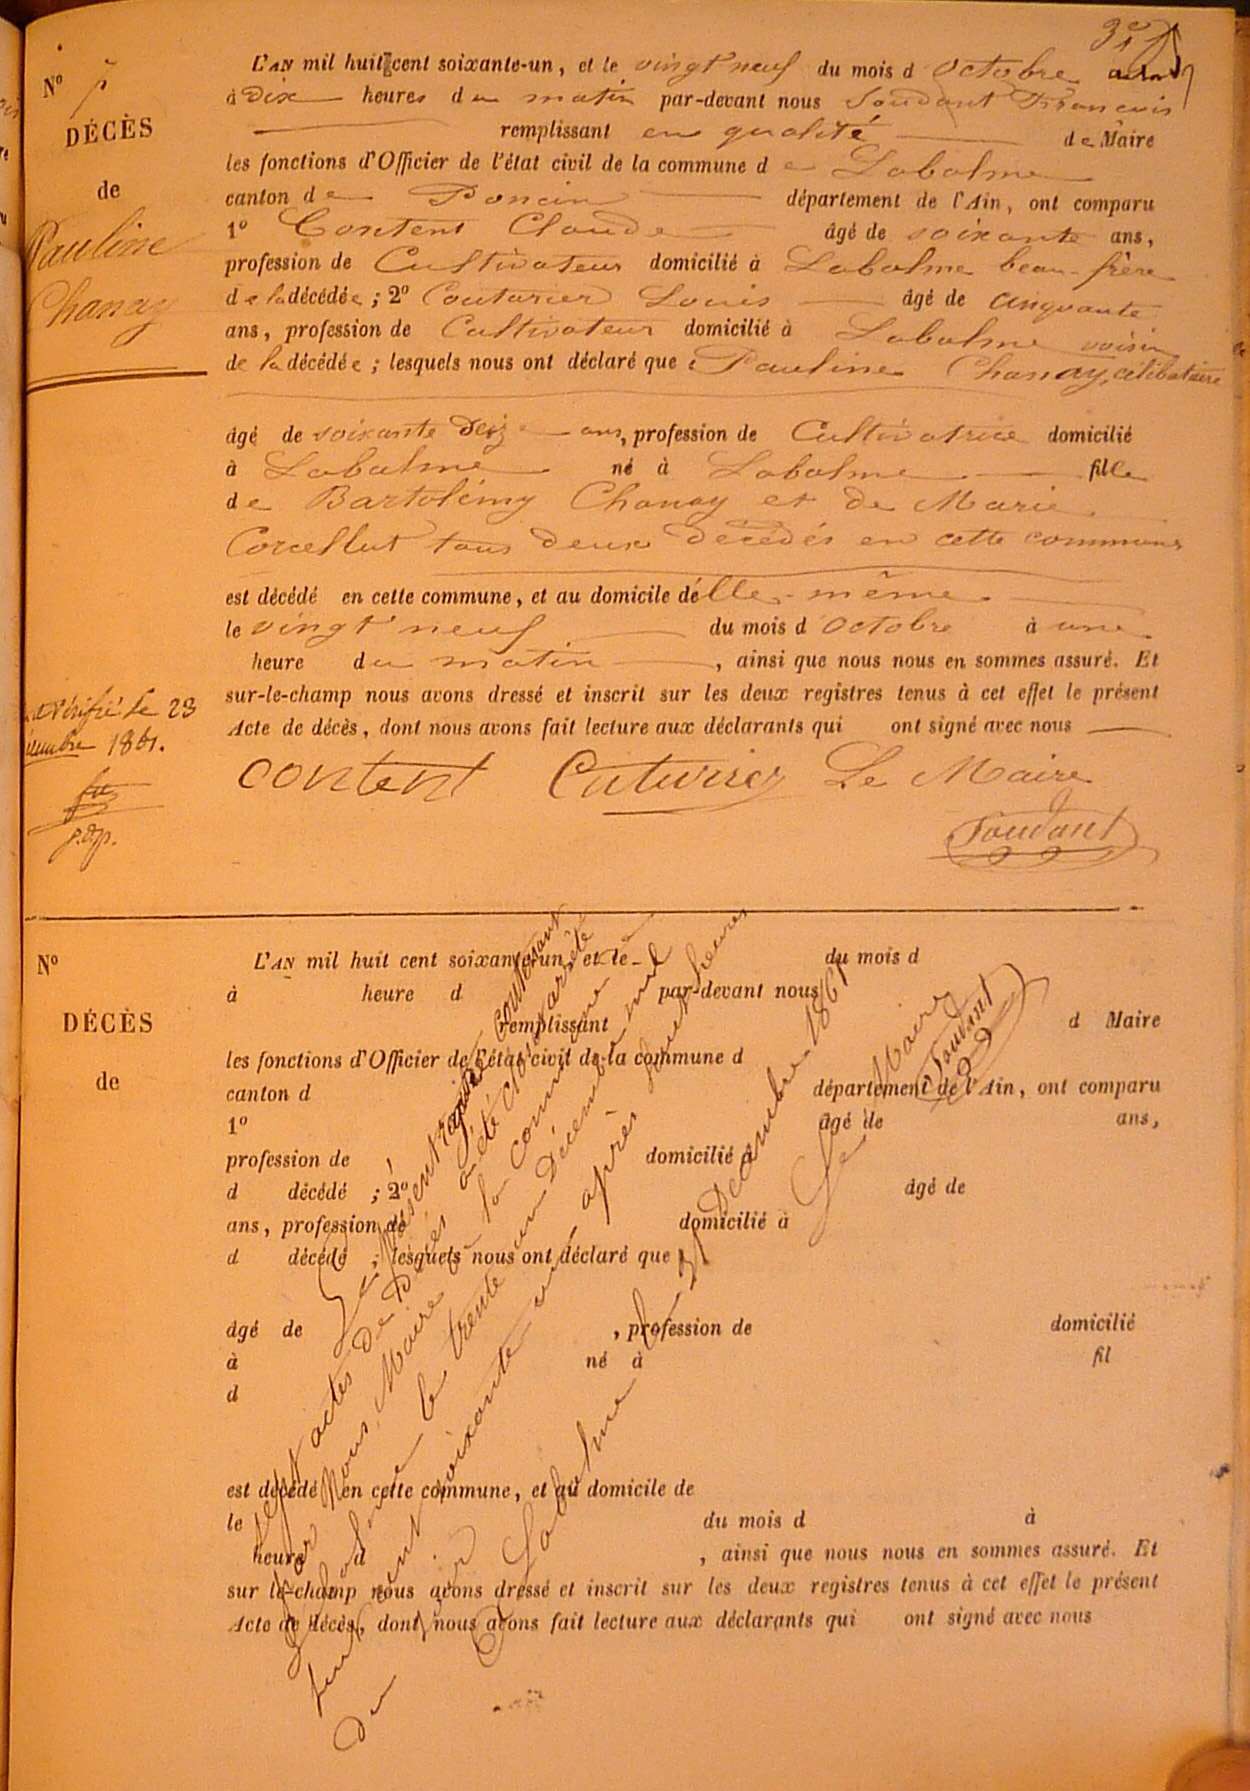 Nº 7
DÉCÈS
de
Pauline
Chanay
L'AN mil huit cent soixante-un, et le vingt neuf du mois d octobre
à Dix heures du matin par-devant nous Soudant François
remplissant en qualité de Maire
les fonctions d'Officier de l'état civil de la commune de Labalme
canton de Poncin département de l'Ain, ont comparu
1º Content Claude âgé de soixante ans,
profession de Cultivateur domicilié à Labalme beau-frère
de la décédée ; 2º Couturier Louis âgé de cinquante
ans, profession de Cultivateur domicilié à Labalme voisin
de la décédée ; lesquels nous ont déclaré que Pauline Chanay, célibataire
âgé de soixante ans, profession de Cultivatrice domicilié
à Labalme né à Labalme fille
de Bartolémy Chanay et de Marie
Corcellut tous deux décédés en cette commune
est décédé en cette commune, et au domicile d'élle-même
le vingt neuf du mois d octobre à une
heure du matin, ainsi que nous nous en sommes assuré. Et
sur-le-champ nous avons dressé et inscrit sur les deux registres tenus à cet effet le présent
Acte de décès, dont nous avons fait lecture aux déclarants qui ont signé avec nous
Vérifié le 23
1861.
content Cuturier Le Maire
Soudant
Nº
DÉCÈS
de
L'AN mil huit cent soixante-un, et le du mois d
à heure d par-devant nous
remplissant d Maire
les fonctions d'Officier de l'état civil de la commune d
canton d département de l'Ain, ont comparu
1º âgé de ans,
profession de domicilié à
d décédé ; 2º âgé de
ans, profession de domicilié à
d décédé ; lesquels nous ont déclaré que
âgé de , profession de domicilié
à né à fil
d
est décédé en cette commune, et au domicile de
le du mois d à
heure d , ainsi que nous nous en sommes assuré. Et
sur-le-champ nous avons dressé et inscrit sur les deux registres tenus à cet effet le présent
Acte de décès, dont nous avons fait lecture aux déclarants qui ont signé avec nous
Le présent registre contenant
sept actes de Décès a été clos et arrêté
par Nous, Maire de la commune de
Labalme le trente un Décembre mil
huit cent soixante un, après heures
du soir
Labalme le 31 Décembre 1861
Le Maire
Soudant